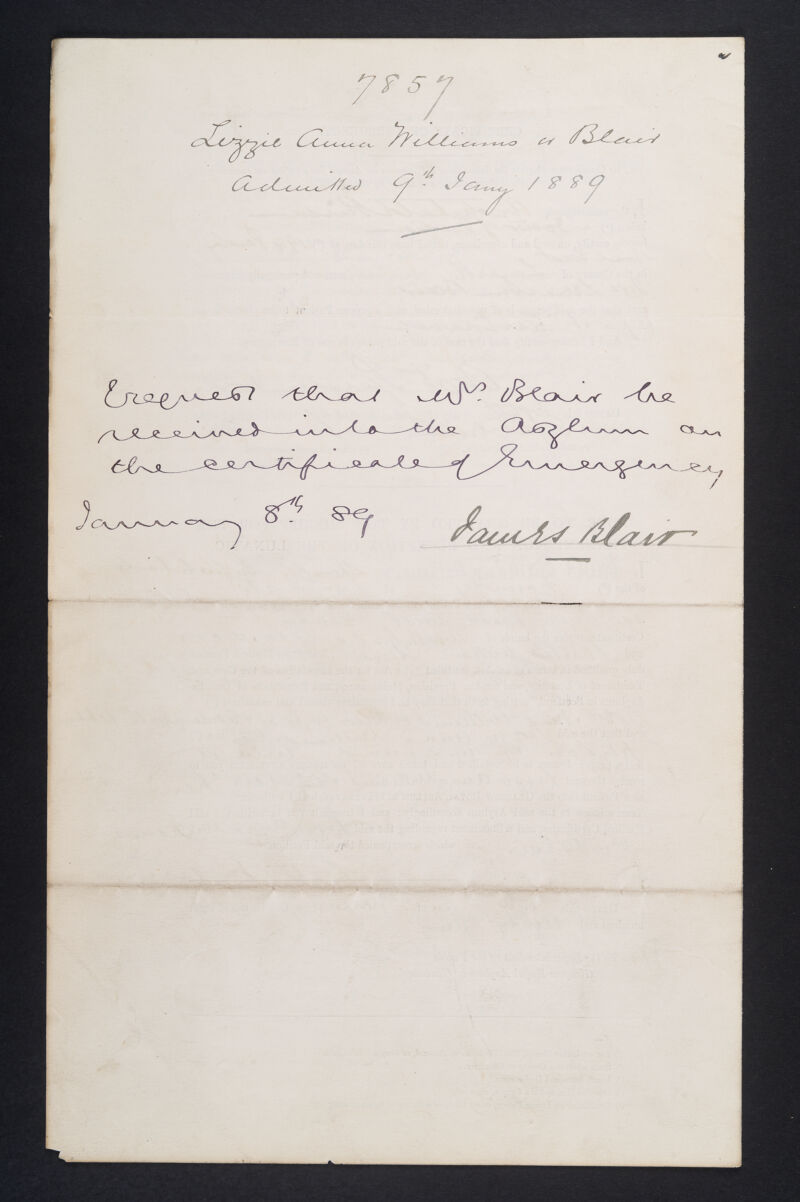 7857
Lizzie Anna Williams or Blair
Admitted 9th Jany 1889
I request that Mrs. Blair be
received into the Asylum on
the certificate of Emergency
January 8th. 89
James Blair